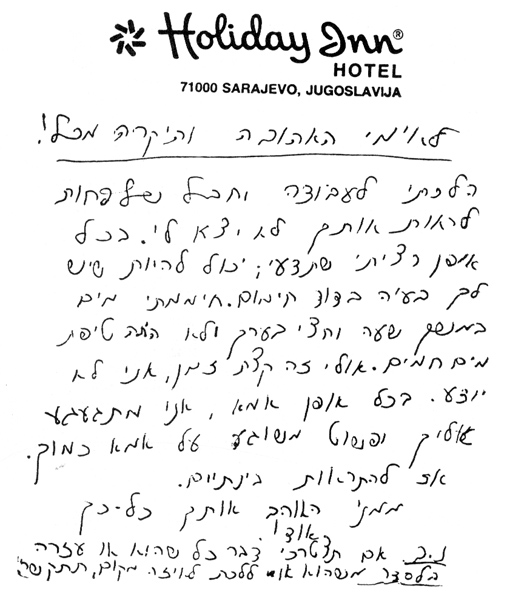 Holiday Inn®
HOTEL
71000 SARAJEVO, JUGOSLAVIJA
לאימי האהובה והיקרה מכל!
הלכתי לעבודה וחבל שלפחות
לראות אותך לא יצא לי. בכל
אופן רציתי שתדעי; יכול להיות שיש
לך בעיה בדוד חימום. חיממתי מים
במשך שעה וחצי בערך ולא היתה טיפת
מים חמים. אולי זה קצת זמן, אני לא
יודע. בכל אופן אמא, אני מתגעגע
אליך ופשוט משוגע על אמא כמוך.
אז להתראות בינתיים.
ממני האוהב אותך כל-כך
נ.ב. אם תצטרכי דבר כל שהוא או עזרה
בלסדר משהוא או ללכת לאיזה מקום, תתקשרי